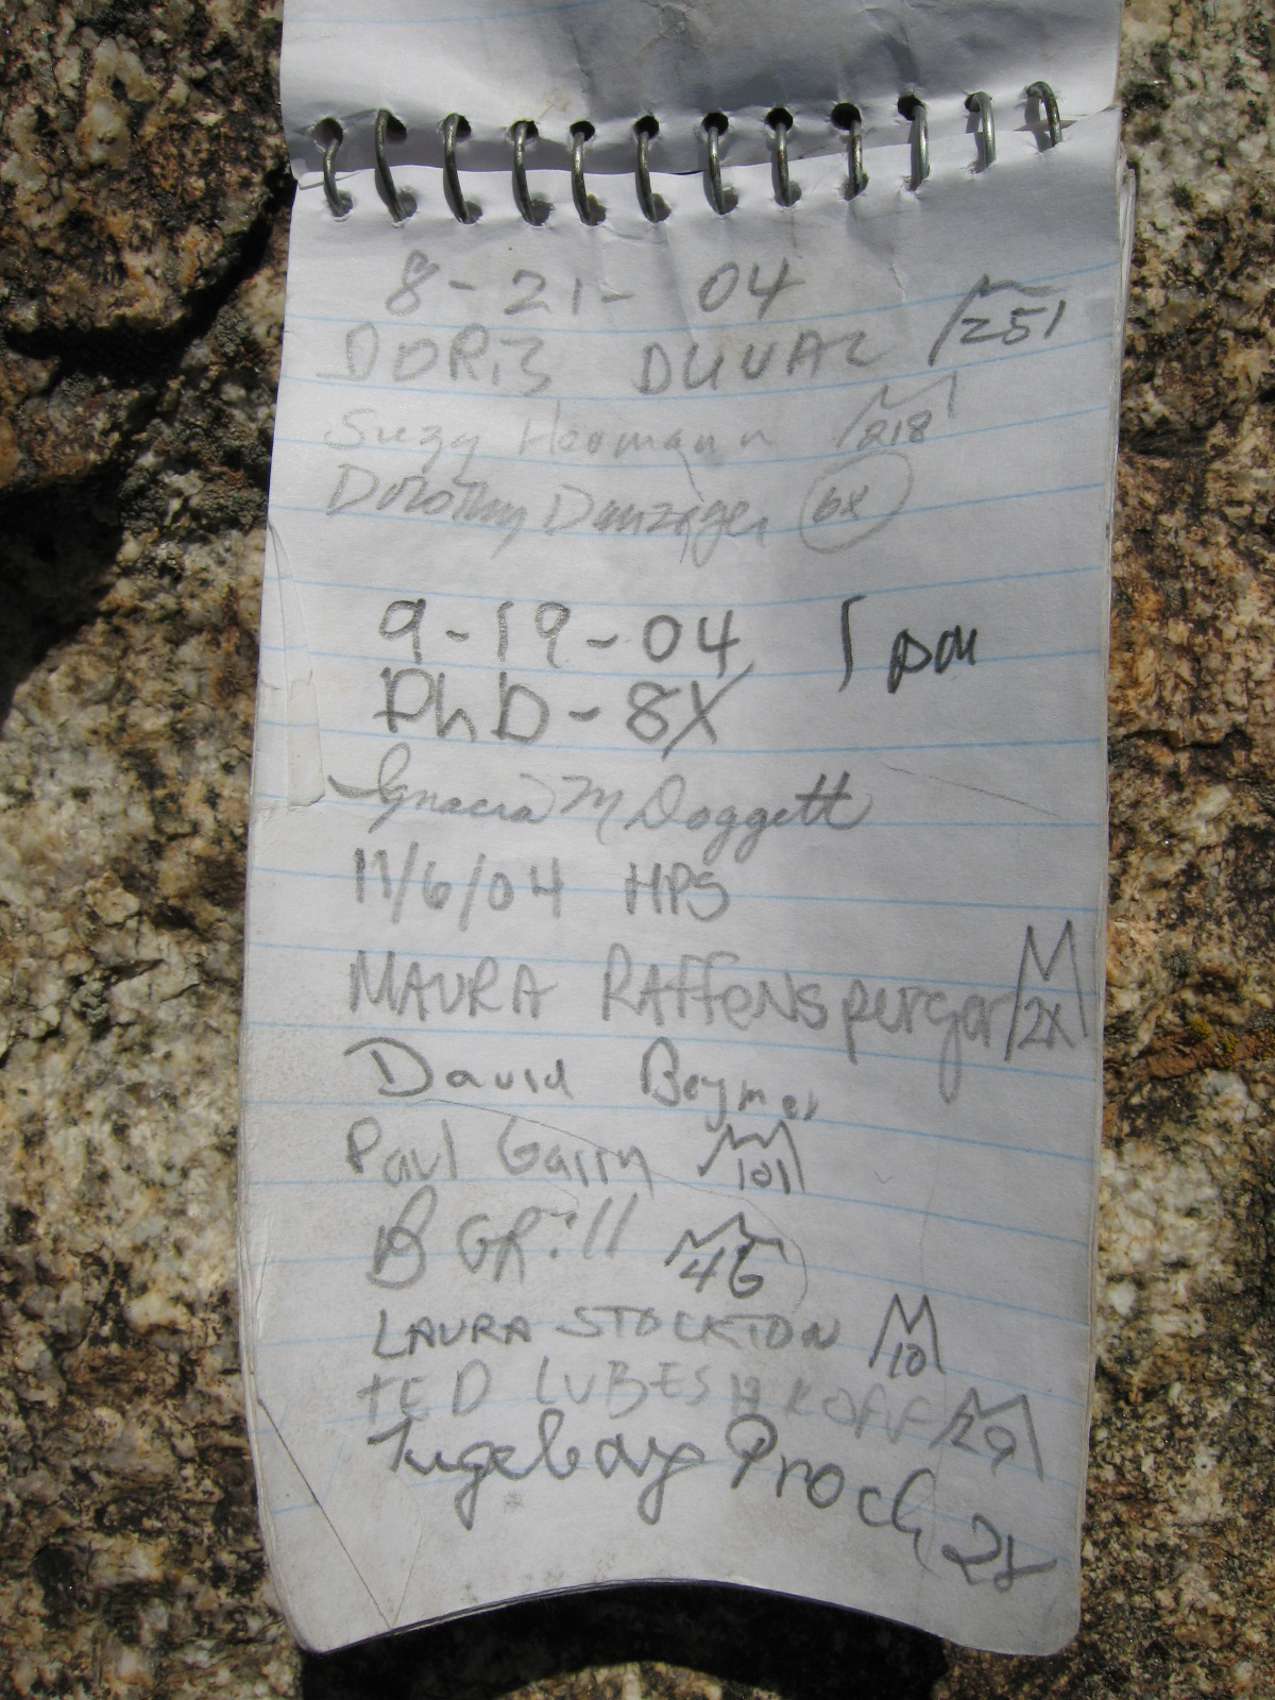 8-21-04
DORiS DUVAL 251
Suzy Hermann 218
Dorothy Danziger 6X
9-19-04 1 pm
PhD-8X
Ignacia M Doggett
11/6/04 HPS
MAURA RAffeNsperger 2X
David Beymer
Paul Garry 101
B GRill 46
LAURA STOCKTON 10
TED LUBESHKOFF 29
Proch 2x